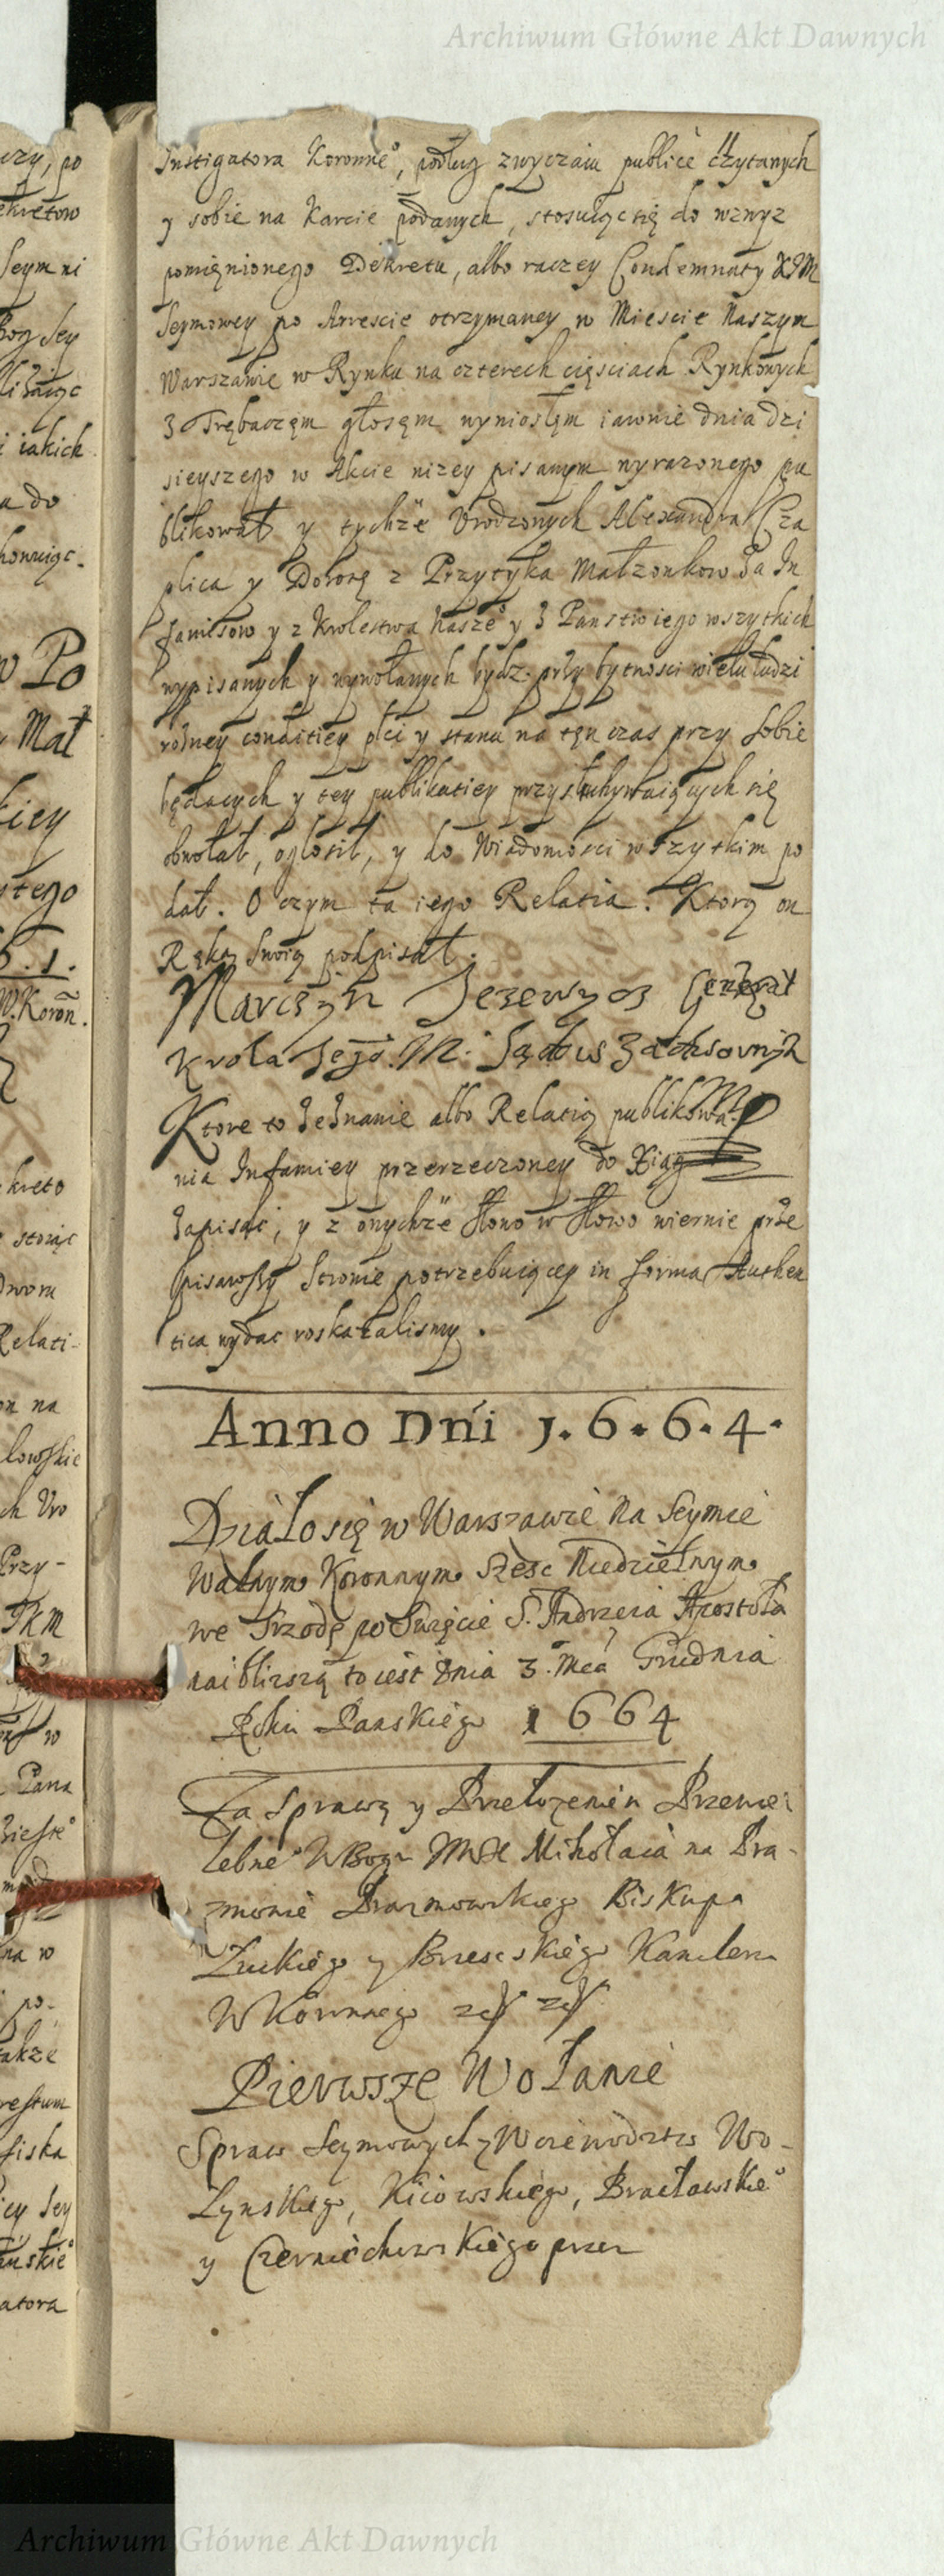 Archiwum Główne Akt Dawnych
Instigatora Koronne°, podług zwyczaiu publicè czytanych
y sobie na Karcie podanych, stosuiąc się do wznyz
pomięnionego Dekretu, albo raczey Condemnaty
Seymowey po Arrescie otrzymaney w Miescie Naszym
Warszawie w Rynku na czterech częsciach Rynkowych
z Trębaczęm głosęm wyniosłęm iawnie dnia dzi
sieyszego w Akcie nizey pisanym wyrazonego pu
blikował y tychże Urodzonych Alexandra Cza
plica y Dorotę z Przytyka Małzonkow Za In
famisow y z Krolestwa Nasze° y z Panstw iego wszytkich
wypisanych y wywołanych bydz. przy bytnosci wielu ludzi
rożney conditiey płci y stanu na tęn czas przy sobie
będących y tey publikatiey przysłuchywaiących się
obwołał, ogłosił, y do Wiadomosci wszytkim po
dał. O czym ta iego Relatia. Ktorą on
Ręką Swoią podpisał.
Marczyn Jezewyćz Generał
Krola Jego M. Sądow Zadwornych
Ktore to Zeznanie albo Relatią publikowa
nia Infamiey przerzeczoney do Xiąg
Zapisać, y z onychże słowo w słowo wiernie prze
pisawszy Stronie potrzebuiącey in forma Authen
tica wydac roskazalismy.
Anno Dńi 1.6.6.4.
Działo się w Warszawie Na Seymie
Walnym Koronnym Szesc Niedzielnym
we Srzodę po Swięcie S. Andrzeia Apostoła
naiblizszą to iest dnia 3. Mca Grudnia
Roku Panskiego 1664
Za Sprawą y Przełozenim Przewie
lebne° W Bogu Mikołaia na Pra-
zmowie Prazmowskiego Biskupa
Łuckiego y Brzesckiego Kanclerza
W Koronnego
Pierwsze Wołanie
Spraw Seymowych z Woiewodztw Wo-
łynskiego, Kiiowskiego, Bracławskie°
y Czerniechowskiego przez
czy, po
ekretow
Seymni
iakich
a do
w Po
Mał
kiey
ytego
6.1.
W. Koroñ.
kreto
stoiąc
Dworu
Relati-
on na
lowskie
ch Uro
Przy-
w
Pana
na w
po-
akże
restum
fiska
icy Sey
atora
Archiwum Główne Akt Dawnych